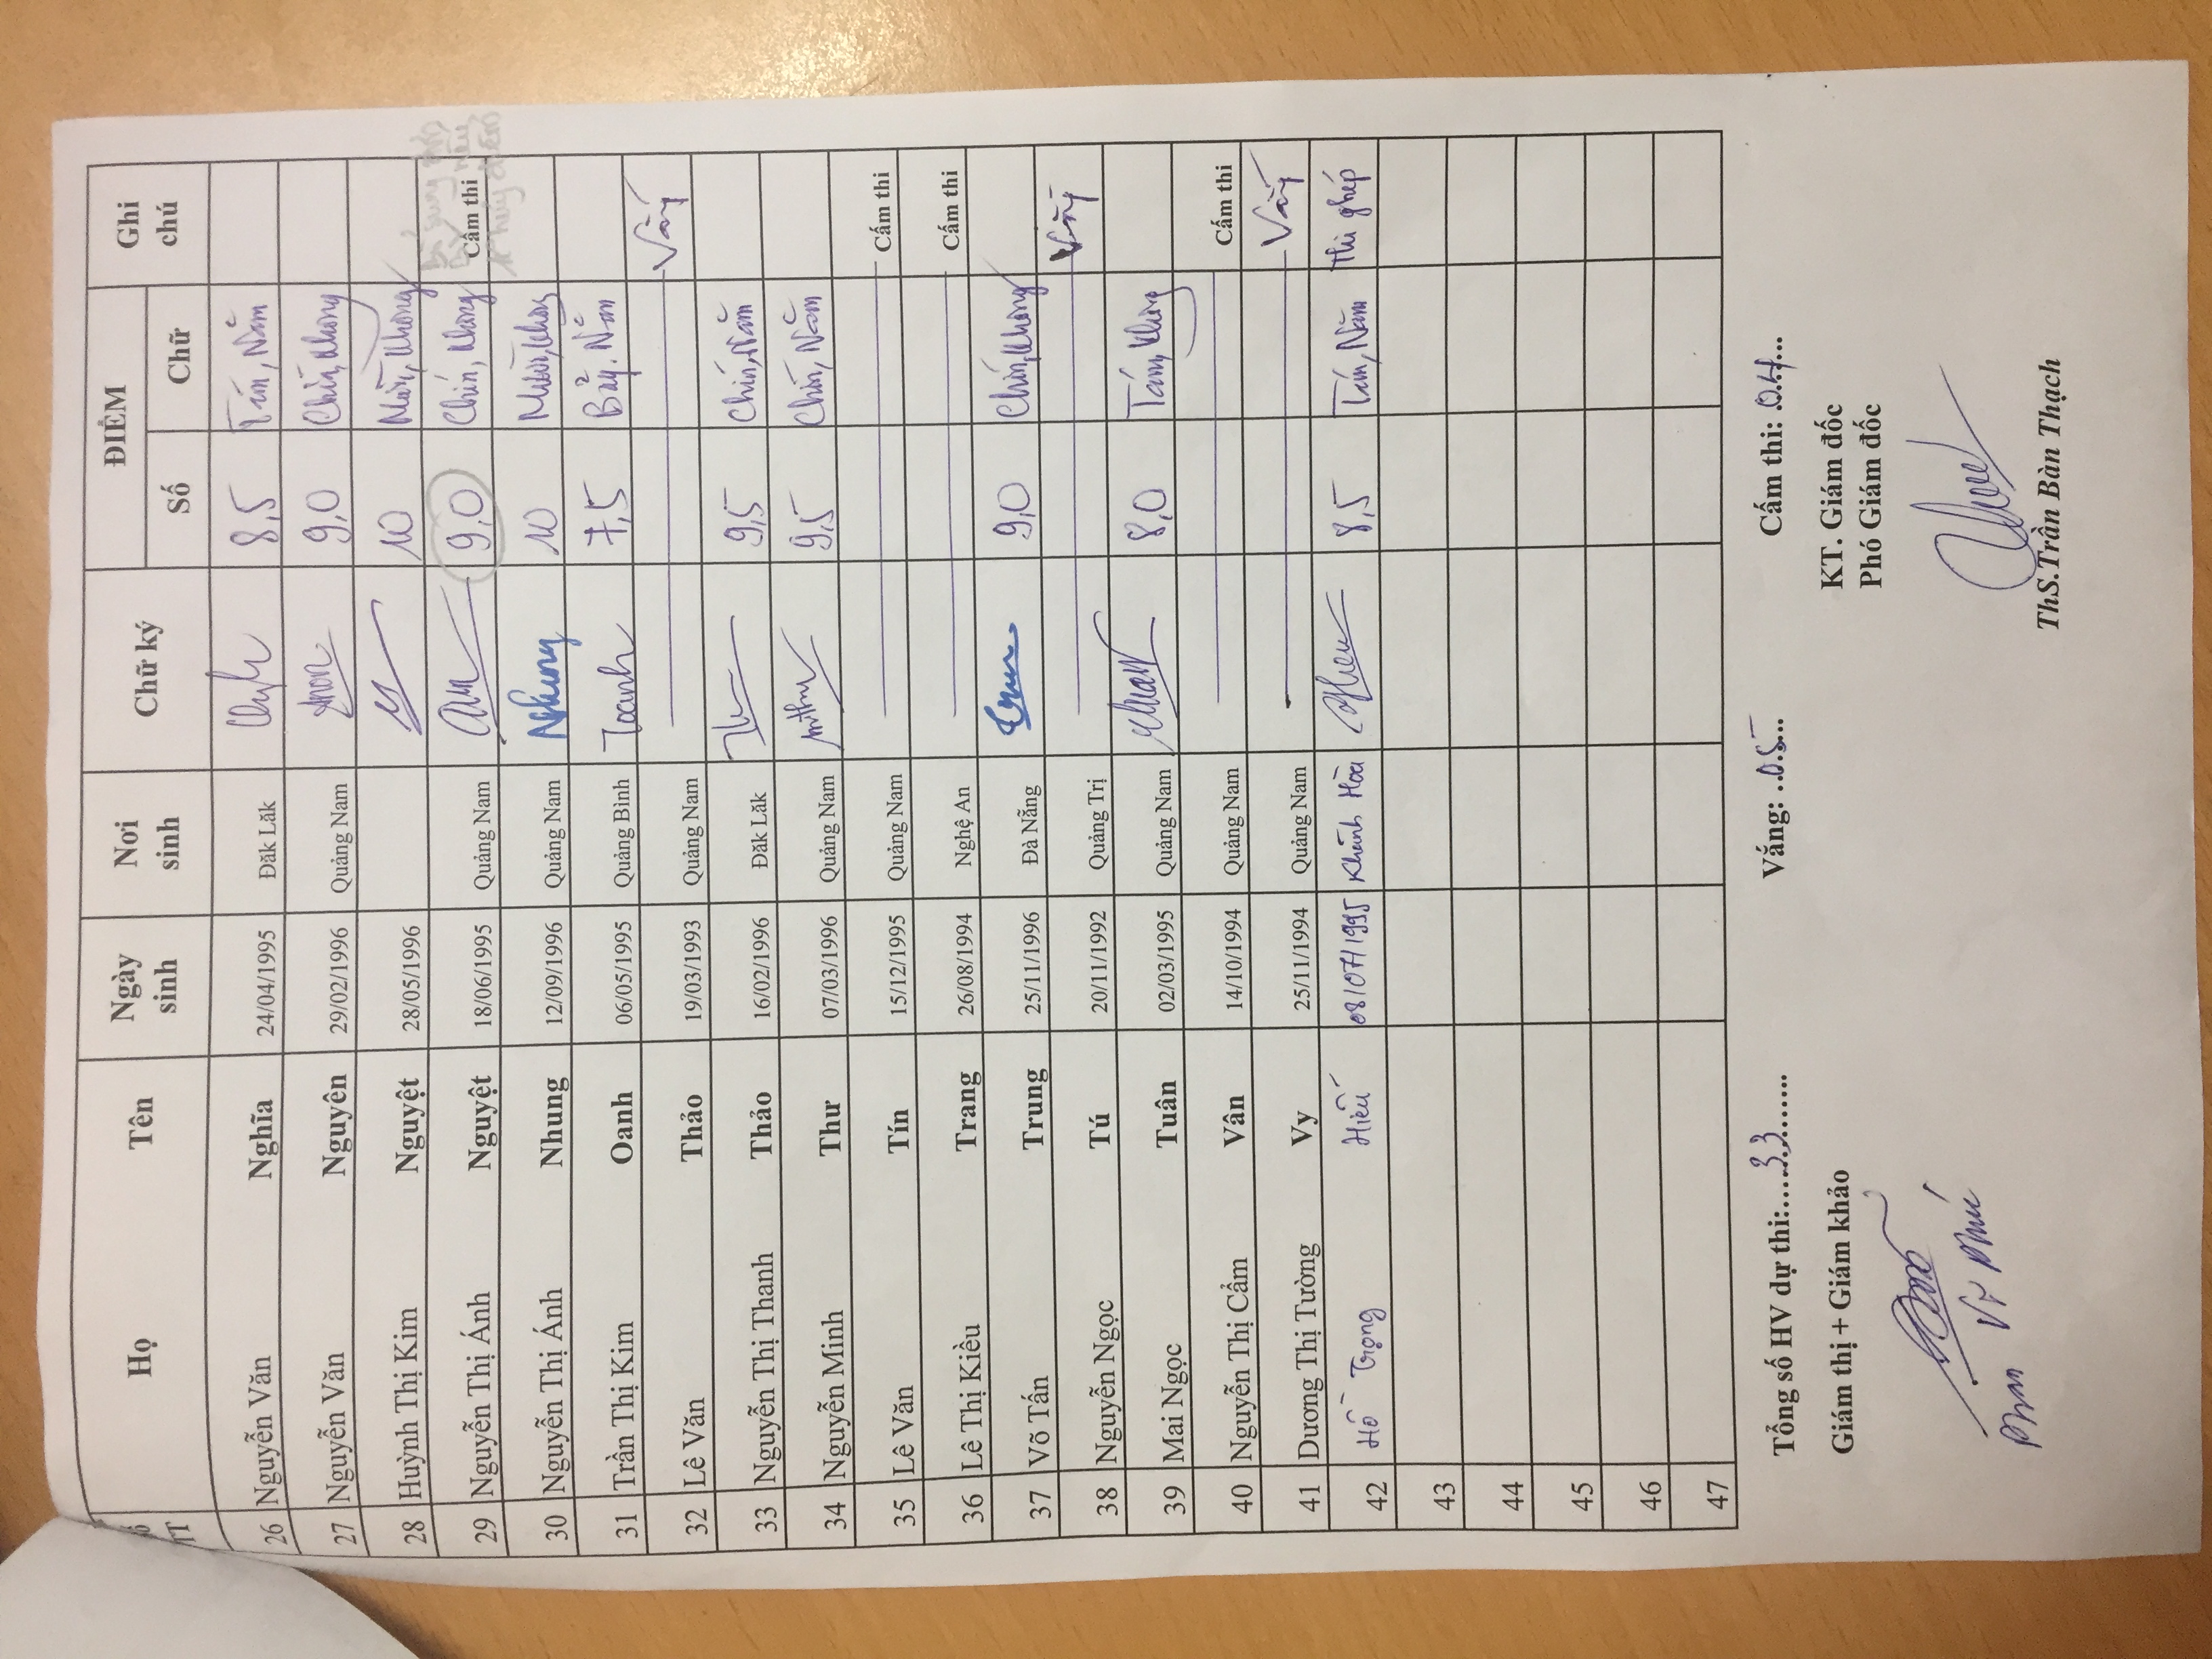 TT Họ Tên Ngày sinh Nơi sinh Chữ ký ĐIỂM Ghi chú
Số Chữ
26 Nguyễn Văn Nghĩa 24/04/1995 Đăk Lăk 8,5 Tám, Năm
27 Nguyễn Văn Nguyên 29/02/1996 Quảng Nam 9,0 Chín, Không
28 Huỳnh Thị Kim Nguyệt 28/05/1996 10 Mười, Không
29 Nguyễn Thị Ánh Nguyệt 18/06/1995 Quảng Nam 9,0 Chín, Không Cấm thi
30 Nguyễn Thị Ánh Nhung 12/09/1996 Quảng Nam Nhung 10 Mười, Không
31 Trần Thị Kim Oanh 06/05/1995 Quảng Bình Toanh 7,5 Bảy, Năm
32 Lê Văn Thảo 19/03/1993 Quảng Nam Vắng
33 Nguyễn Thị Thanh Thảo 16/02/1996 Đăk Lăk 9,5 Chín, Năm
34 Nguyễn Minh Thư 07/03/1996 Quảng Nam 9,5 Chín, Năm
35 Lê Văn Tín 15/12/1995 Quảng Nam Cấm thi
36 Lê Thị Kiều Trang 26/08/1994 Nghệ An Cấm thi
37 Võ Tấn Trung 25/11/1996 Đà Nẵng 9,0 Chín, Không
38 Nguyễn Ngọc Tú 20/11/1992 Quảng Trị Vắng
39 Mai Ngọc Tuân 02/03/1995 Quảng Nam 8,0 Tám, Không
40 Nguyễn Thị Cẩm Vân 14/10/1994 Quảng Nam Cấm thi
41 Dương Thị Tường Vy 25/11/1994 Quảng Nam Vắng
42 Hồ Trọng Hiếu 08/07/1995 Khánh Hòa 8,5 Tám, Năm Thi ghép
43
44
45
46
47
Tổng số HV dự thi:.....33......... Vắng: ..05... Cấm thi: .04...
Giám thị + Giám khảo KT. Giám đốc
Phó Giám đốc
Phan Vĩ Phú
ThS.Trần Bàn Thạch